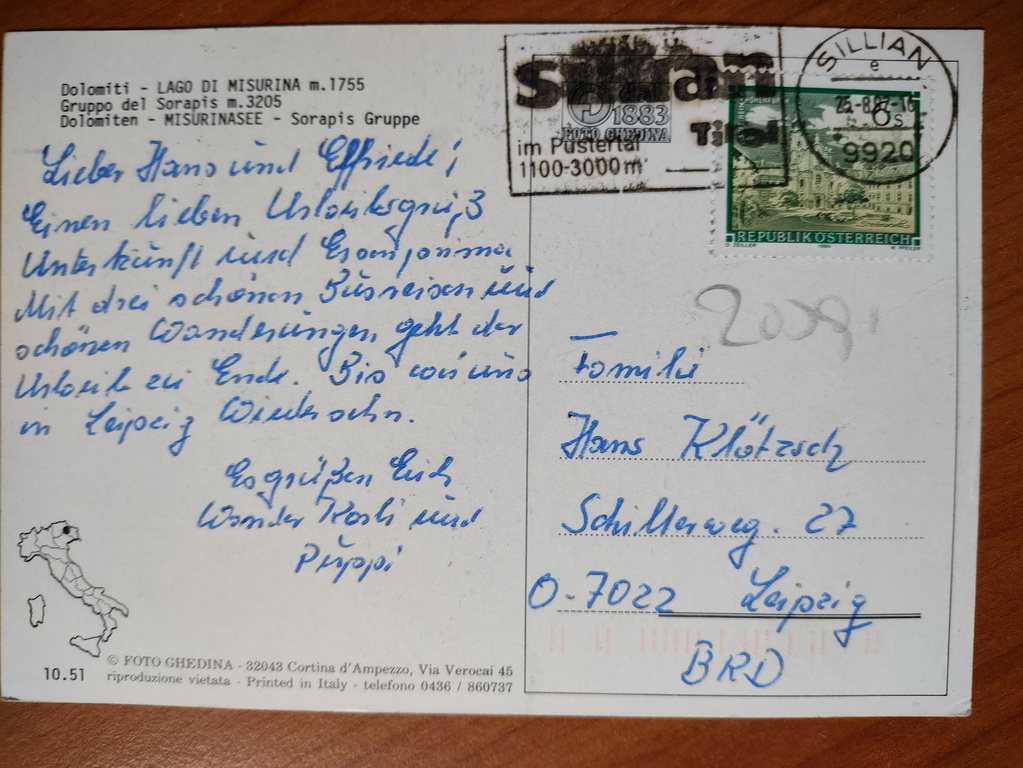 Dolomiti - LAGO DI MISURINA m.1755
Gruppo del Sorapis m.3205
Dolomiten - MISURINASEE - Sorapis Gruppe
Lieber Hans und Elfriede!
Einen lieben Urlaubsgruß
Unterkunft und Essen prima
Mit drei schönen Busreisen und
schönen Wanderungen geht der
Urlaub zu Ende. Bis wir uns
in Leipzig Wiedersehn.
Es grüßen Euch
Wander Karli und
Puppi
© FOTO GHEDINA - 32043 Cortina d'Ampezzo, Via Verocai 45
10.51
riproduzione vietata - Printed in Italy - telefono 0436 / 860737
sillian
Tirol
im Pustertal
1100-3000m
1883
FOTO GHEDINA
SILLIAN
e
9920
6s
REPUBLIK ÖSTERREICH
Familie
Hans Klötzsch
Schillerweg. 27
O-7022 Leipzig
BRD